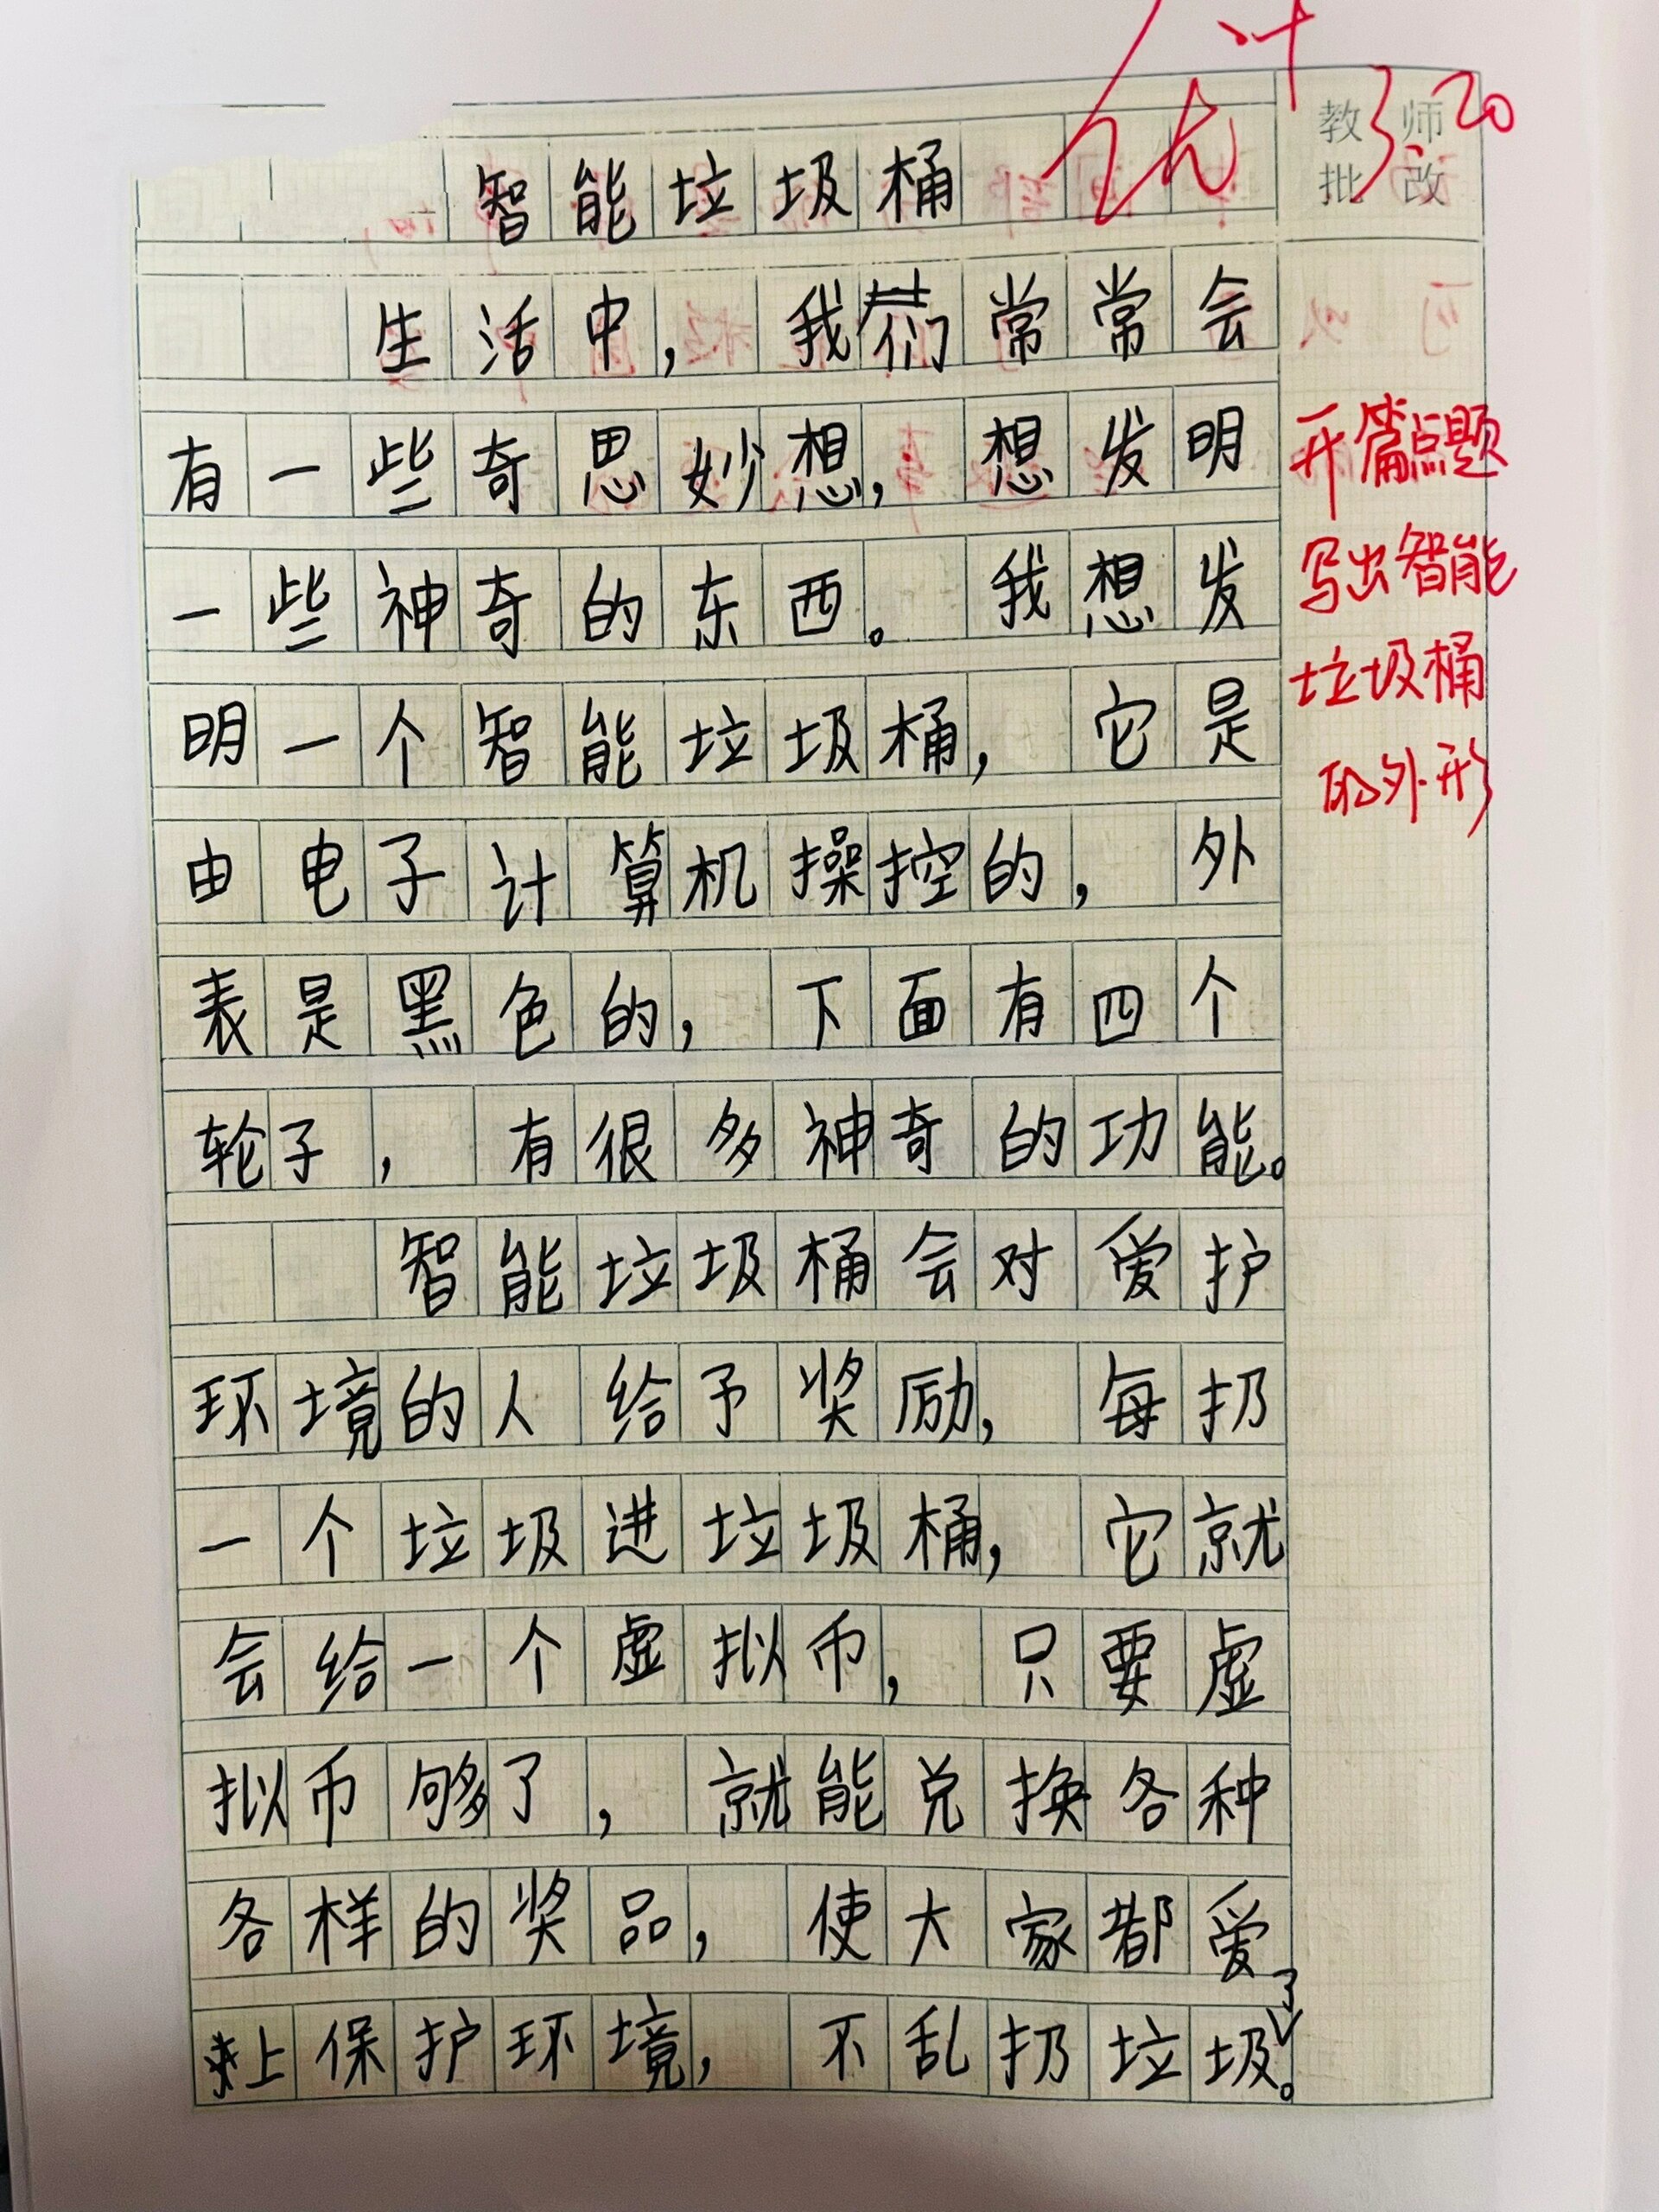 优++
教师
批改
3.20
智能垃圾桶
生活中，我们常常会
有一些奇思妙想，想发明
一些神奇的东西。我想发
明一个智能垃圾桶，它是
由电子计算机操控的，外
表是黑色的，下面有四个
轮子，有很多神奇的功能。
智能垃圾桶会对爱护
环境的人给予奖励，每扔
一个垃圾进垃圾桶，它就
会给一个虚拟币，只要虚
拟币够了，就能兑换各种
各样的奖品，使大家都爱
上保护环境，不乱扔垃圾了。
开篇点题
写出智能
垃圾桶
的外形